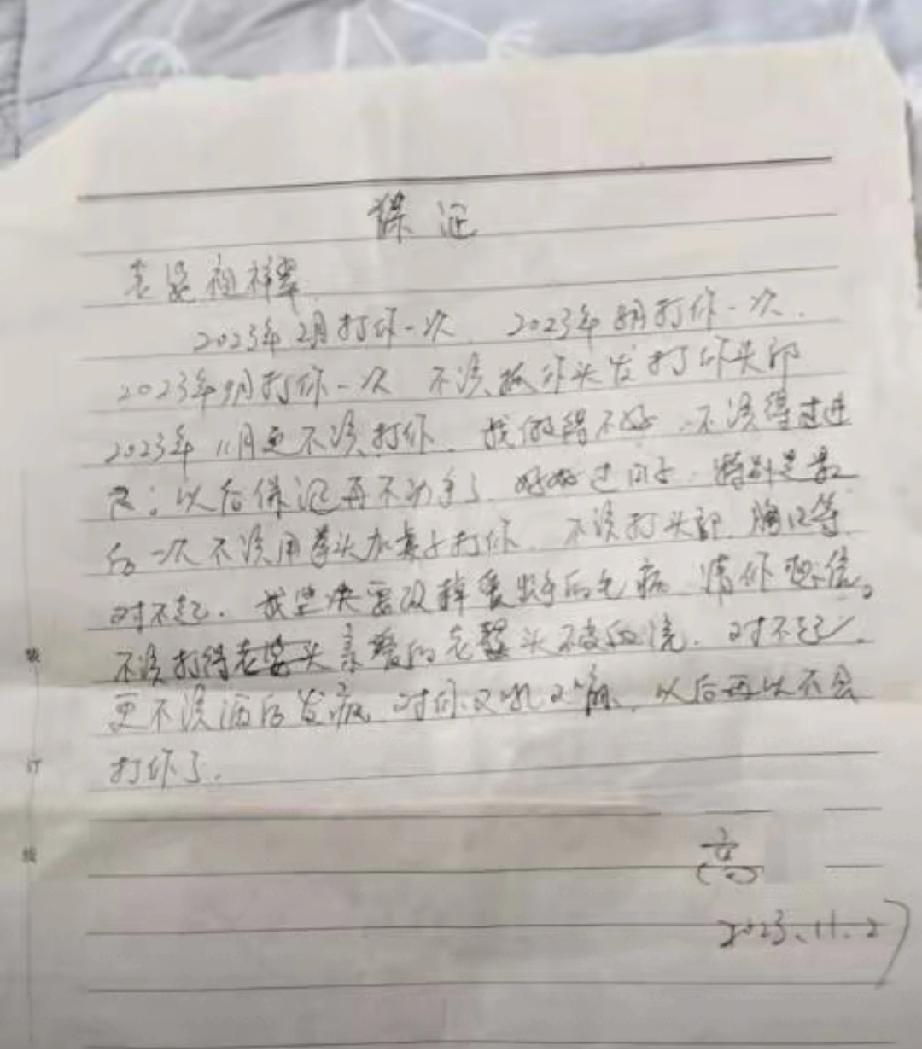 保证
2023年2月打你一次、2023年8月打你一次、
2023年9月打你一次 不该抓你头发打你头部
2023年11月更不该打你、我做得不好、不该得过进
尺；以后保证再不动手了、好好过日子、特别是最
后一次不该用拳头加凳子打你、不该打头部、胸口等
对不起、我坚决要改掉爱动手的毛病 请你相信。
不该打得老婆头 亲爱的老婆头 对不起、
更不该酒后发疯 对你又吼又 以后再以不会
打你了.
装
订
线
高
2023.11.2